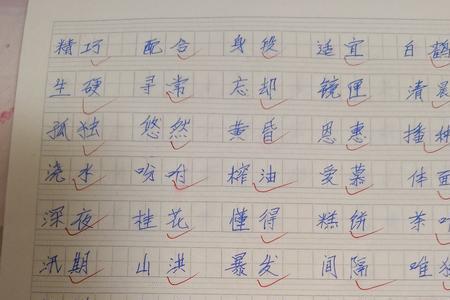 精巧 配合 身段 适宜 白鹤
生硬 寻常 忘却 镜匣 清晨
孤独 悠然 黄昏 恩惠 播种
浇水 吩咐 榨油 爱慕 体面
深夜 桂花 懂得 糕饼 茶叶
汛期 山洪 暴发 间隔 唯